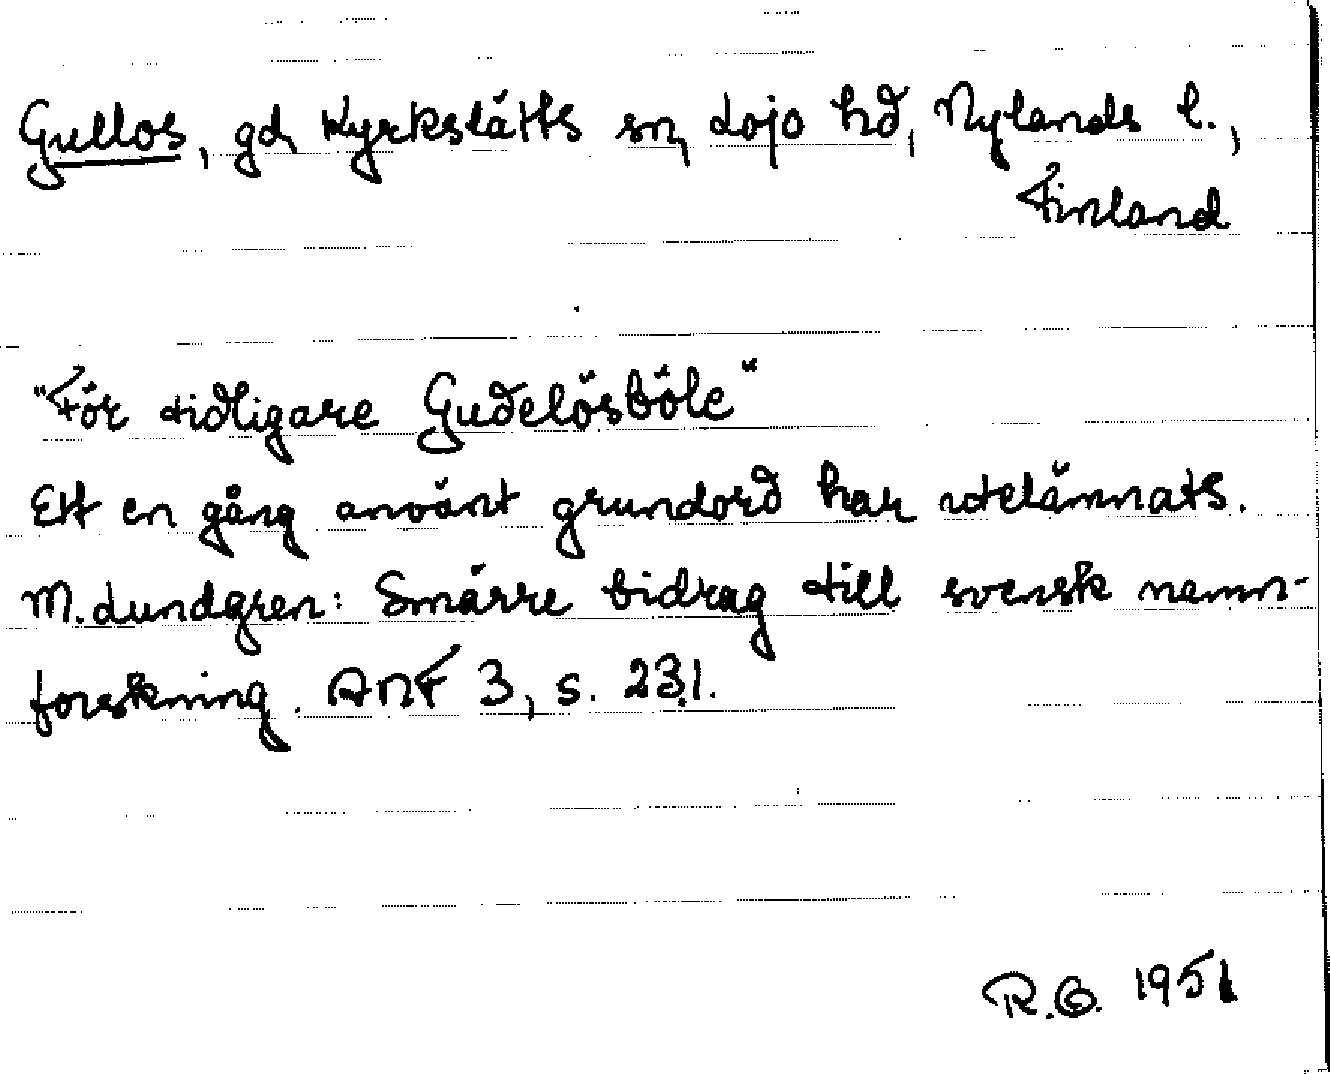 Gullos, gd, Kyrkslätts sn, Lojo hd, Nylands l.,
Finland
"För tidligare Gudelösböle"
Ett en gång använt grundord har utelämnats.
M. Lundgren: Smärre bidrag till svensk namn-
forskning. ANF 3, s. 231.
R.G. 1951